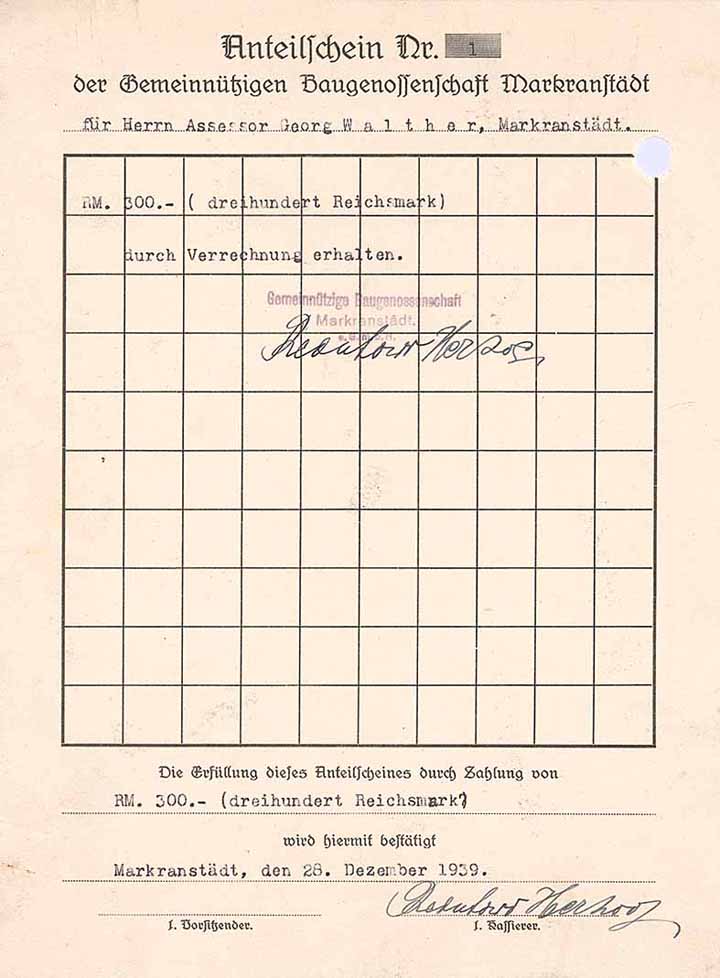 Anteilschein Nr. 1
der Gemeinnützigen Baugenossenschaft Markranstädt
für Herrn Assessor Georg W a l t h e r, Markranstädt.
RM. 300.- ( dreihundert Reichsmark)
durch Verrechnung erhalten.
Gemeinnützige Baugenossenschaft
Markranstädt.
e.G.m.b.H.
Herzog
Die Erfüllung dieses Anteilscheines durch Zahlung von
RM. 300.- (dreihundert Reichsmark)
wird hiermit bestätigt
Markranstädt, den 28. Dezember 1939.
Herzog
1. Vorsitzender. 1. Kassierer.